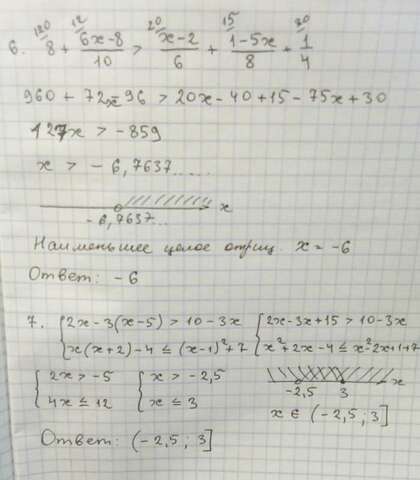 6. 120/8 + 12/(6x-8)/10 > 20/(x-2)/6 + 15/(1-5x)/8 + 30/1/4
960 + 72x - 96 > 20x - 40 + 15 - 75x + 30
127x > -859
x > - 6,7637.....
x
- 6,7637...
Наименьшее целое отриц. x = -6
Ответ: -6
7. { 2x - 3(x-5) > 10 - 3x { 2x - 3x + 15 > 10 - 3x
x(x+2) - 4 ≤ (x-1)² + 7 x² + 2x - 4 ≤ x² - 2x + 1 + 7
{ 2x > -5 { x > -2,5 -2,5 3 x
4x ≤ 12 x ≤ 3 x ∈ (-2,5 ; 3]
Ответ: (-2,5 ; 3]